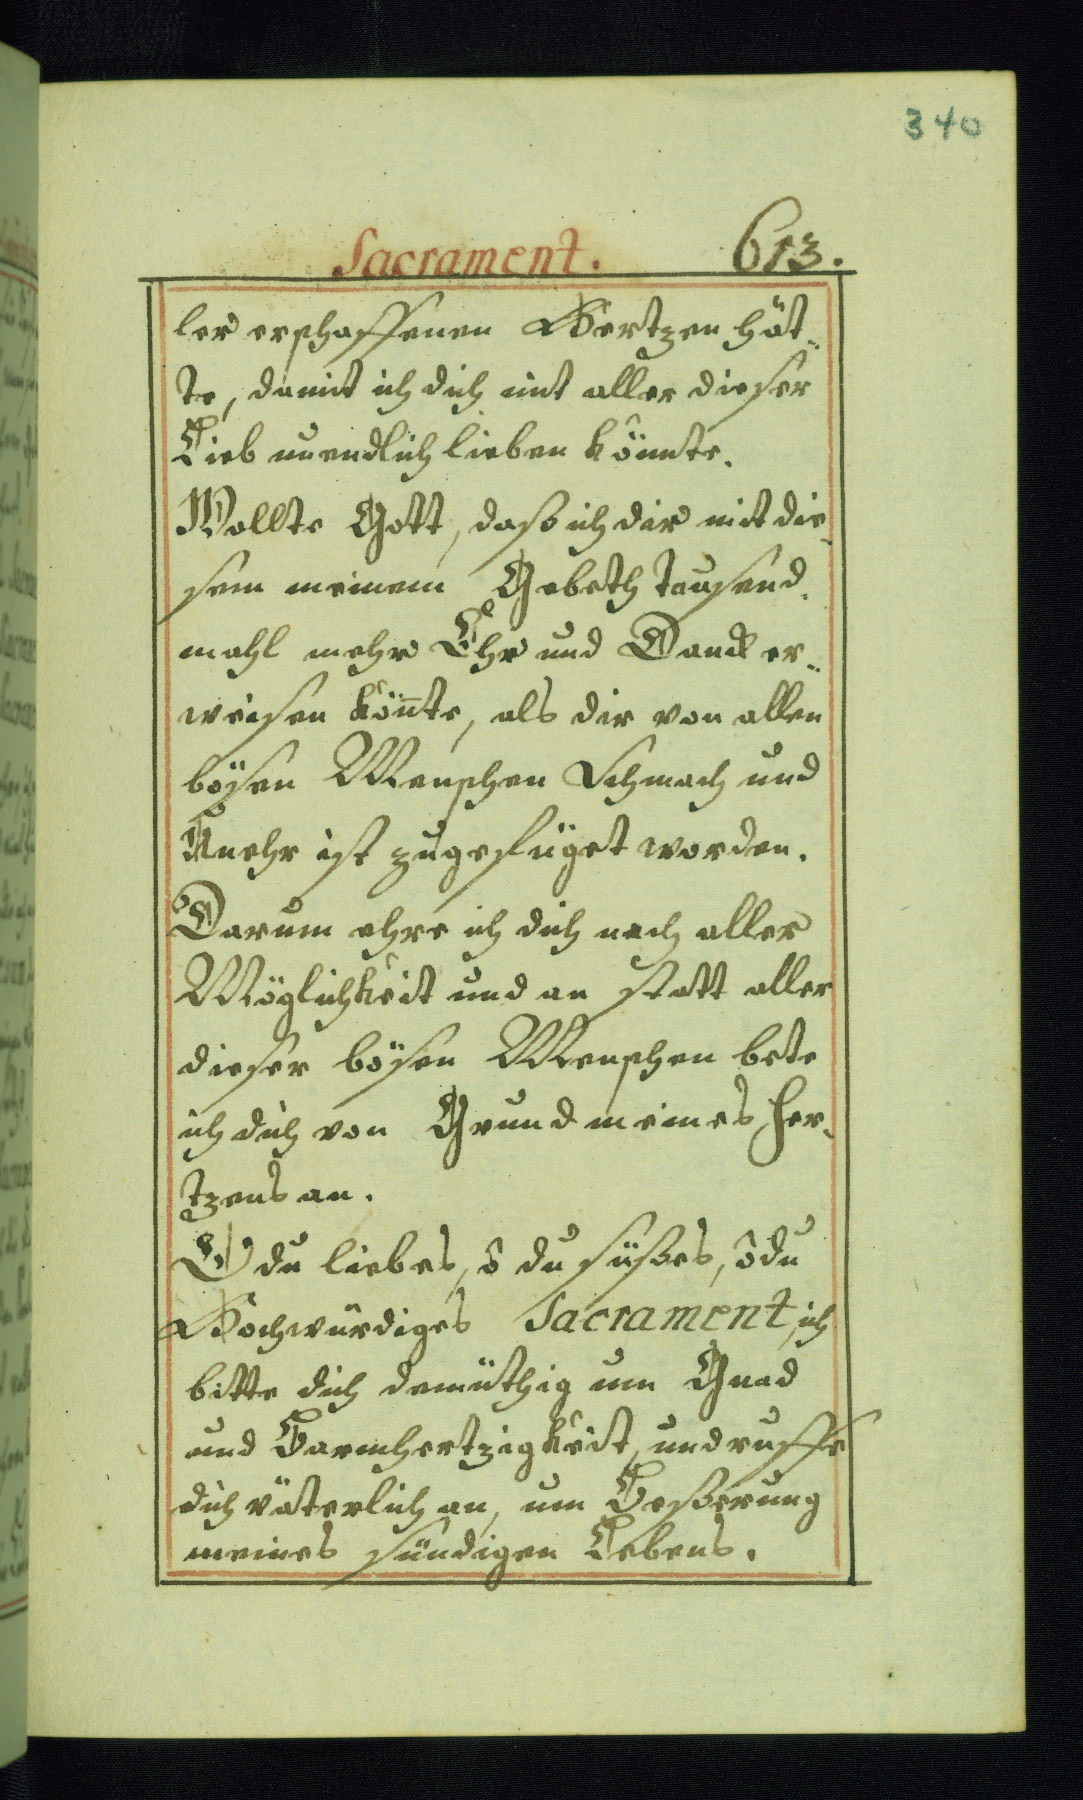 340
Sacrament. 613.
ler erschaffenen Hertzen hät-
te, damit ich dich mit aller dieser
Lieb unendlich lieben könnte.
Wollte Gott, daß ich dir mit die-
sem meinem Gebeth tausend-
mahl mehr Ehr und Danck er-
weisen kön̄te, als dir von allen
bösen Menschen Schmach und
Unehr ist zugefüget worden.
Darum ehre ich dich nach aller
Möglichkeit und an statt aller
dieser bösen Menschen bete
ich dich von Grund meines Her-
tzens an.
O du liebes, ô du süßes, ô du
Hochwürdiges Sacrament, ich
bitte dich demüthig um Gnad
und Barmhertzigkeit, und ruffe
dich väterlich an, um Beßerung
meines sündigen Lebens.